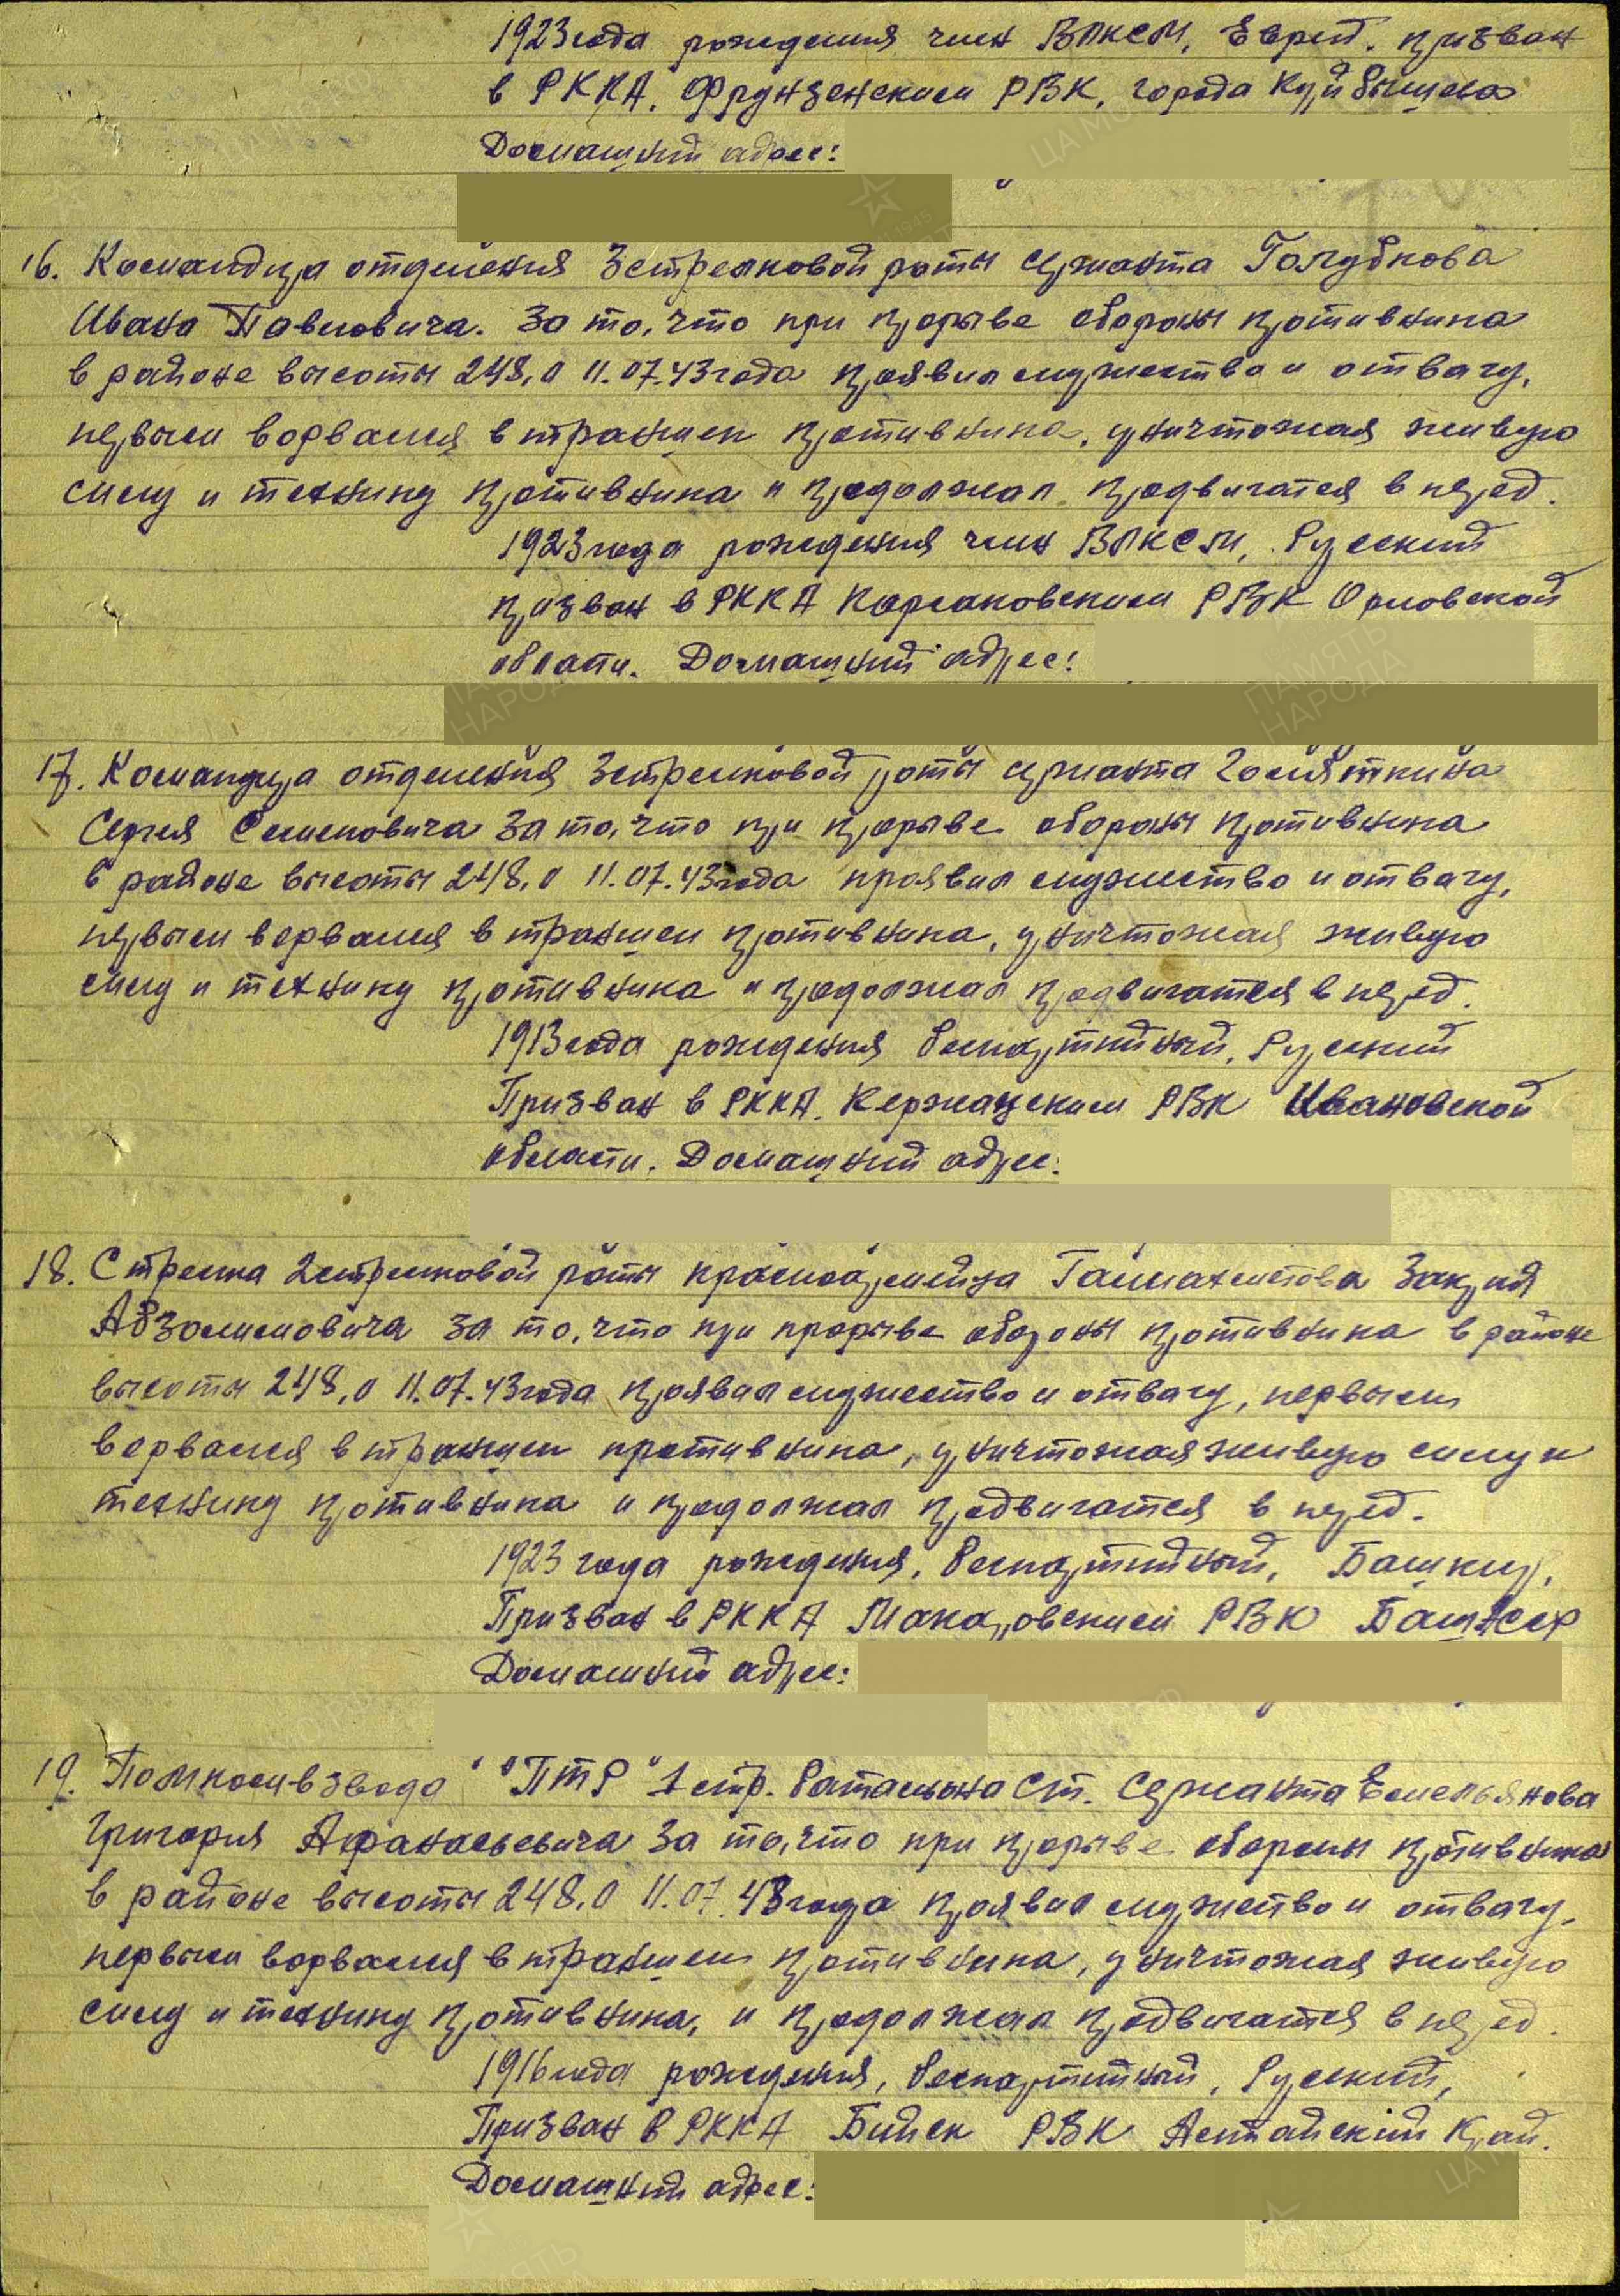 1923 года рождения член ВЛКСМ, Еврей, призван
в РККА. Фрунзенским РВК, города Куйбышева
Домашний адрес:
16. Командира отделения 3 стрелковой роты сержанта Голубкова
Ивана Павловича. За то, что при прорыве обороны противника
в районе высоты 248,0 11.07.43 года проявил мужество и отвагу,
первым ворвался в траншеи противника, уничтожая живую
силу и технику противника и продолжал продвигатся в перед.
1923 года рождения член ВЛКСМ, Русский
призван в РККА РВК Орловской
области. Домашний адрес:
17. Командира отделения 3 стрелковой роты сержанта
Сергея Семеновича За то, что при прорыве обороны противника
в районе высоты 248,0 11.07.43 года проявил мужество и отвагу,
первым ворвался в траншеи противника, уничтожая живую
силу и технику противника и продолжал продвигатся в перед.
1913 года рождения беспартийный, Русский
Призван в РККА. РВК Ивановской
области. Домашний адрес:
18. Стрелка 2 стрелковой роты красноармейца
за то, что при прорыве обороны противника в районе
высоты 248,0 11.07.43 года проявил мужество и отвагу, первым
ворвался в траншеи противника, уничтожая живую силу и
технику противника и продолжал продвигатся в перед.
1923 года рождения, беспартийный, Башкир,
Призван в РККА Макаровским РВК БашАССР
Домашний адрес:
19. Помкомвзвода "ПТР" 1 стр. батальона Ст. Сержанта Емельянова
Григория Афанасьевича За то, что при прорыве обороны противника
в районе высоты 248,0 11.07.43 года проявил мужество и отвагу,
первым ворвался в траншеи противника, уничтожая живую
силу и технику противника, и продолжал продвигатся в перед.
1916 года рождения, беспартийный, Русский,
Призван в РККА Бийск РВК Алтайский Край.
Домашний адрес: